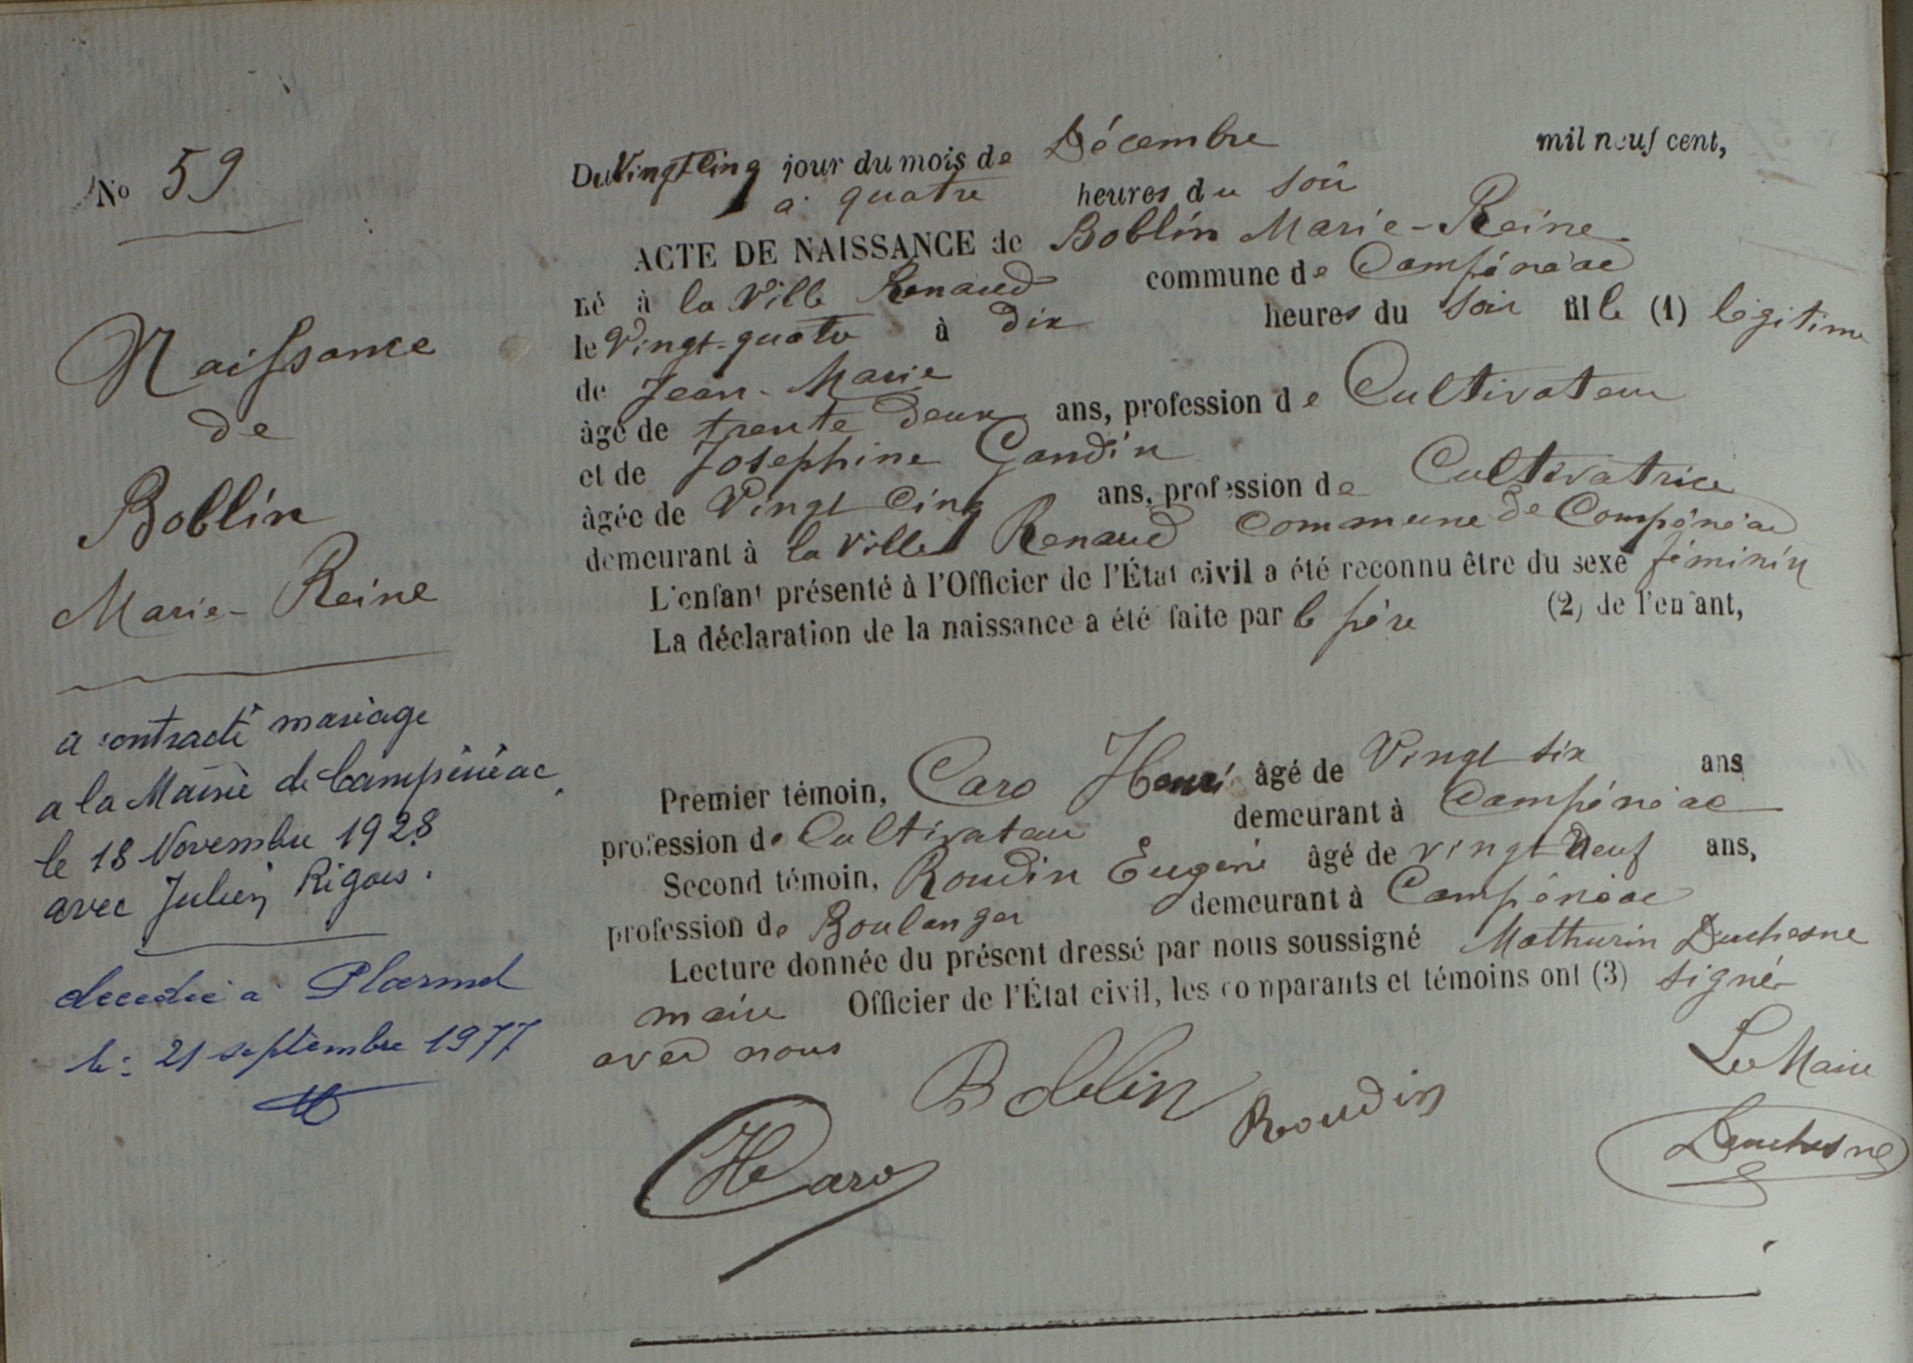 No 59
Naissance
de
Boblin
Marie-Reine
a contracté mariage
a la Mairie de Campénéac,
le 18 Novembre 1928
avec Julien Rigois.
decedée a Ploermel
le: 21 septembre 1977
Du Vingt Cinq jour du mois de Décembre mil neuf cent,
a quatre heures du soir
ACTE DE NAISSANCE de Boblin Marie-Reine
né à la Ville Renaud commune de Campénéac
le Vingt-quatre à dix heures du soir fille (1) légitime
de Jean-Marie
âgé de trente deux ans, profession de Cultivateur
et de Josephine Gandin
âgée de Vingt Cinq ans, profession de Cultivatrice
demeurant à la Ville Renaud commune de Campénéac
L'enfant présenté à l'Officier de l'État civil a été reconnu être du sexe féminin
La déclaration de la naissance a été faite par le père (2) de l'enfant,
Premier témoin, Caro Henri âgé de Vingt six ans
profession de Cultivateur demeurant à Campénéac
Second témoin, Roudin Eugène âgé de vingt Neuf ans,
profession de Boulanger demeurant à Campénéac
Lecture donnée du présent dressé par nous soussigné Mathurin Duchesne
maire Officier de l'État civil, les comparants et témoins ont (3) signé
avec nous
Le Maire
Boblin Roudin
HCaro Duchesne